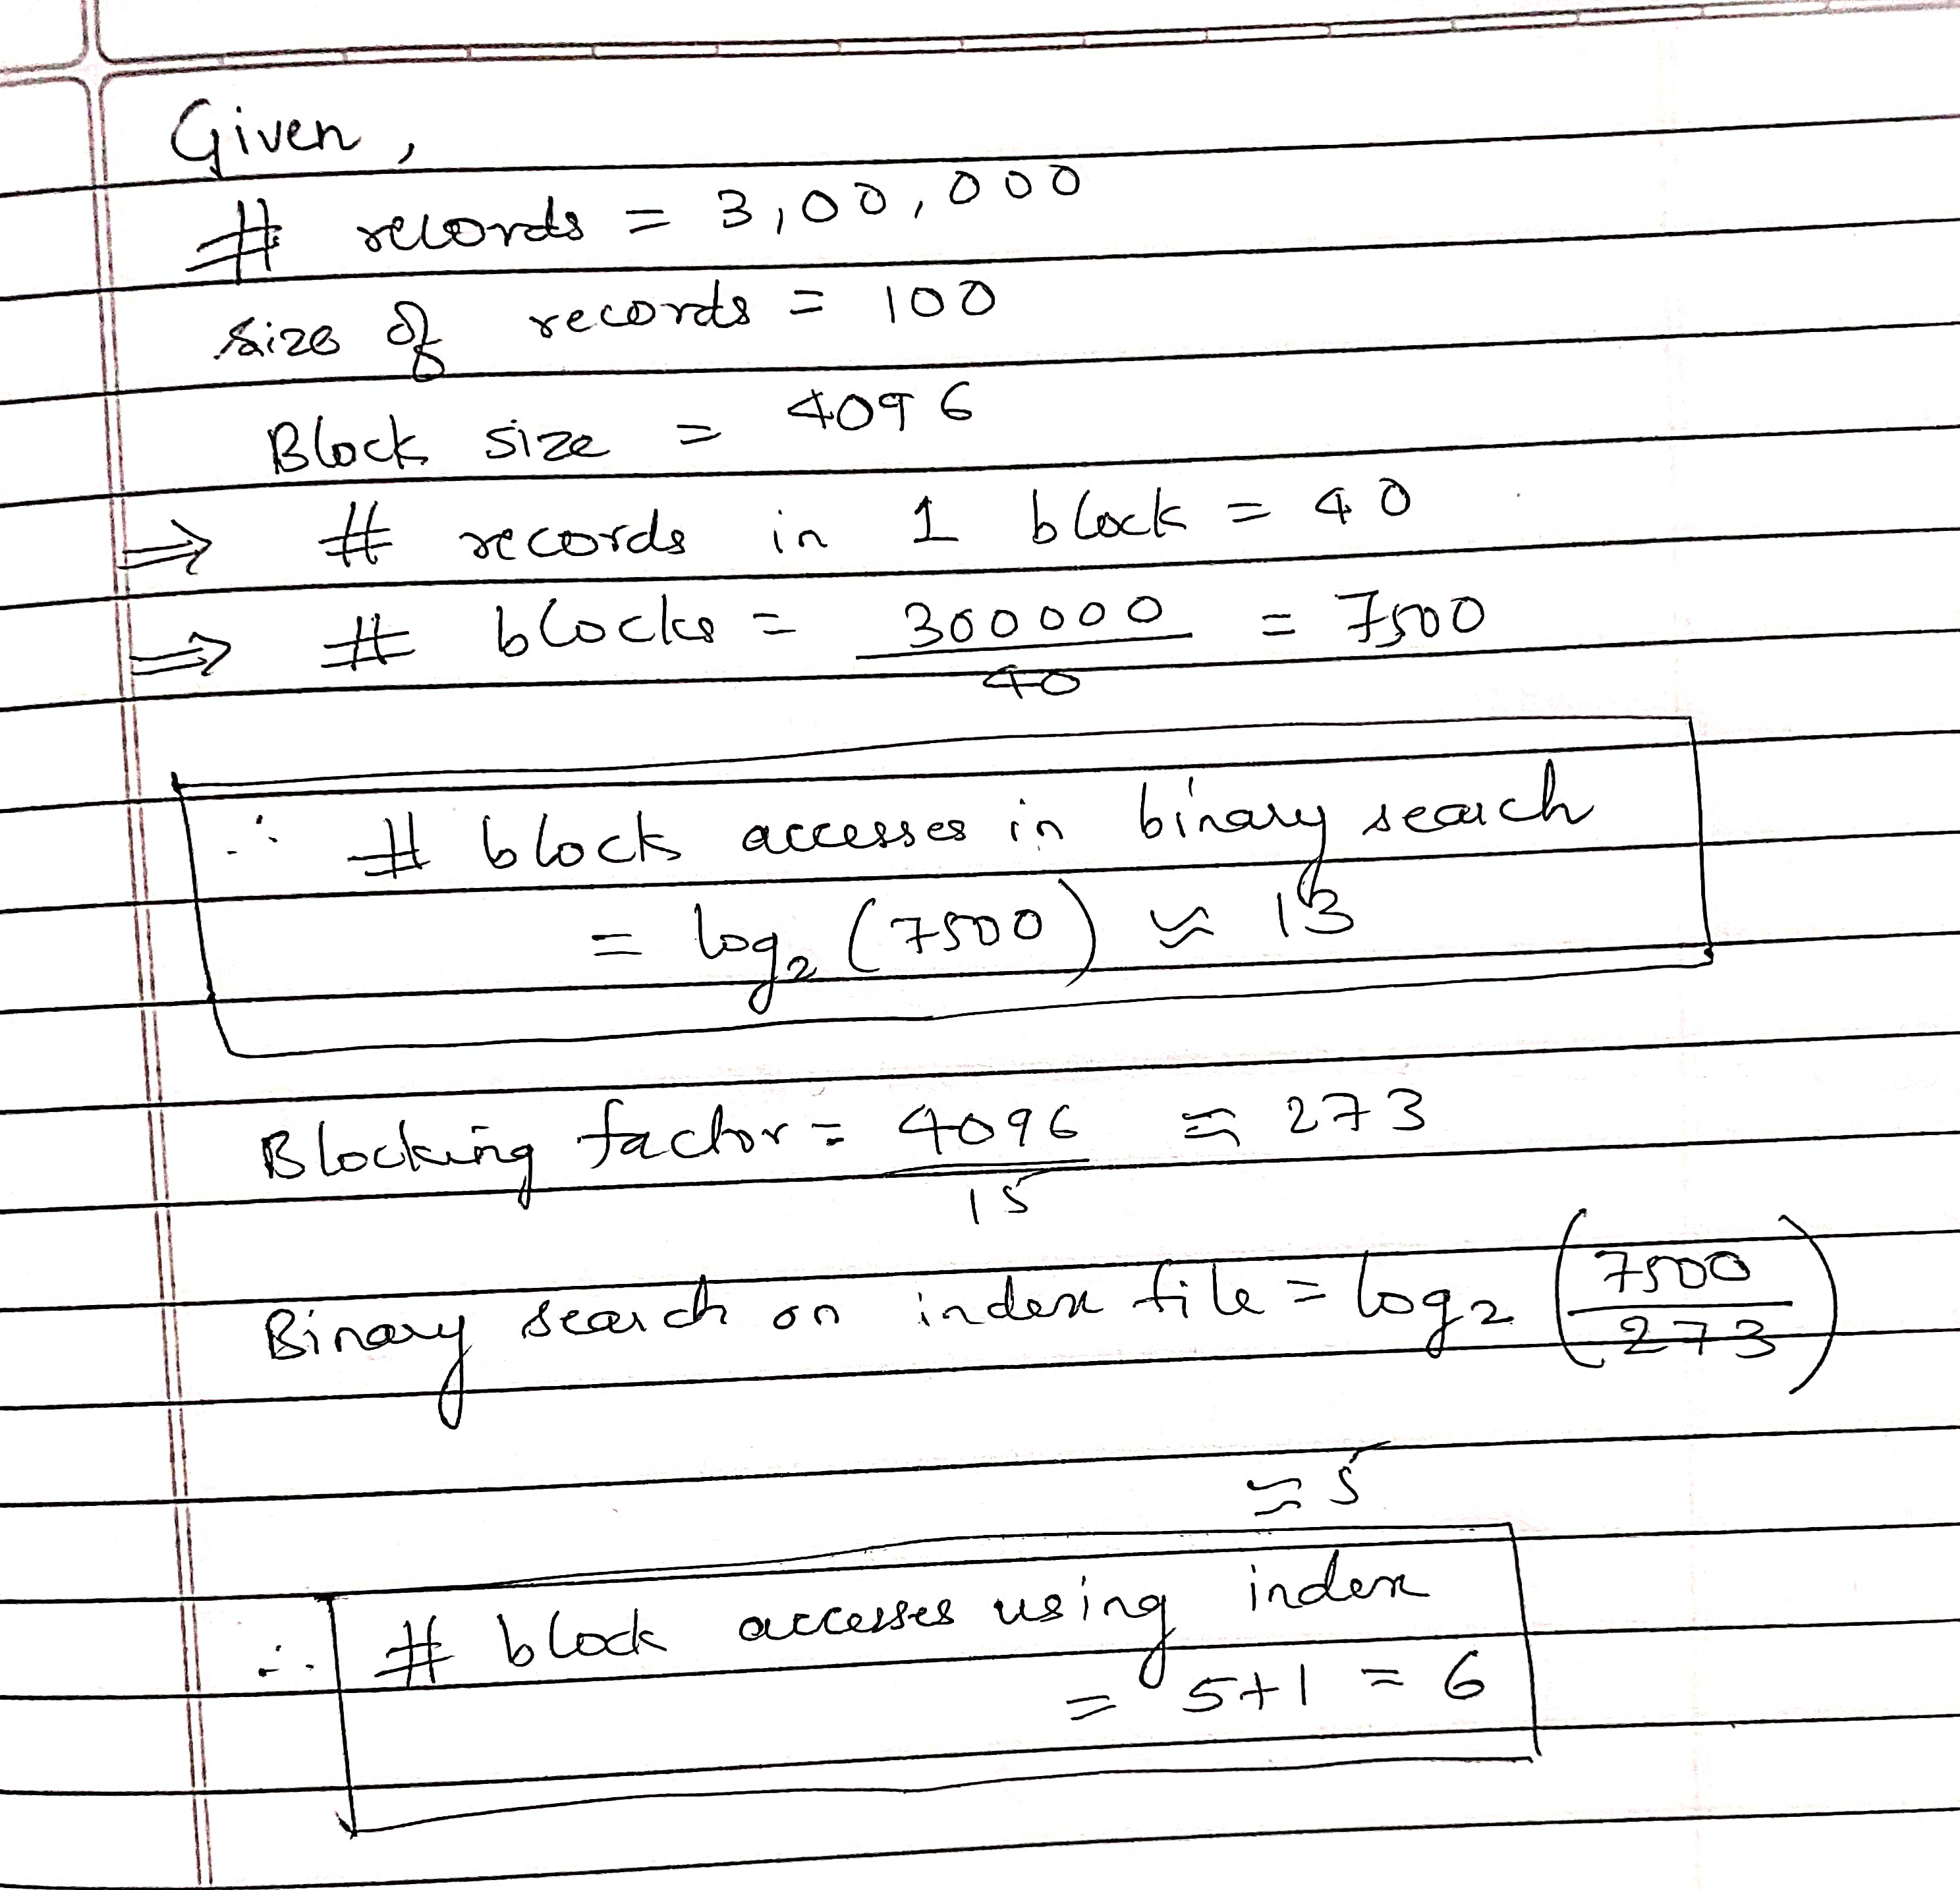 Given,
# records = 3,00,000
size of records = 100
Block size = 4096
⇒ # records in 1 block = 40
⇒ # blocks = 300000 = 7500
40
∴ # block accesses in binary search
= log₂ (7500) ≈ 13
Blocking factor = 4096 ≈ 273
15
Binary search on index file = log₂ (7500
273)
≈ 5
∴ # block accesses using index
= 5+1 = 6